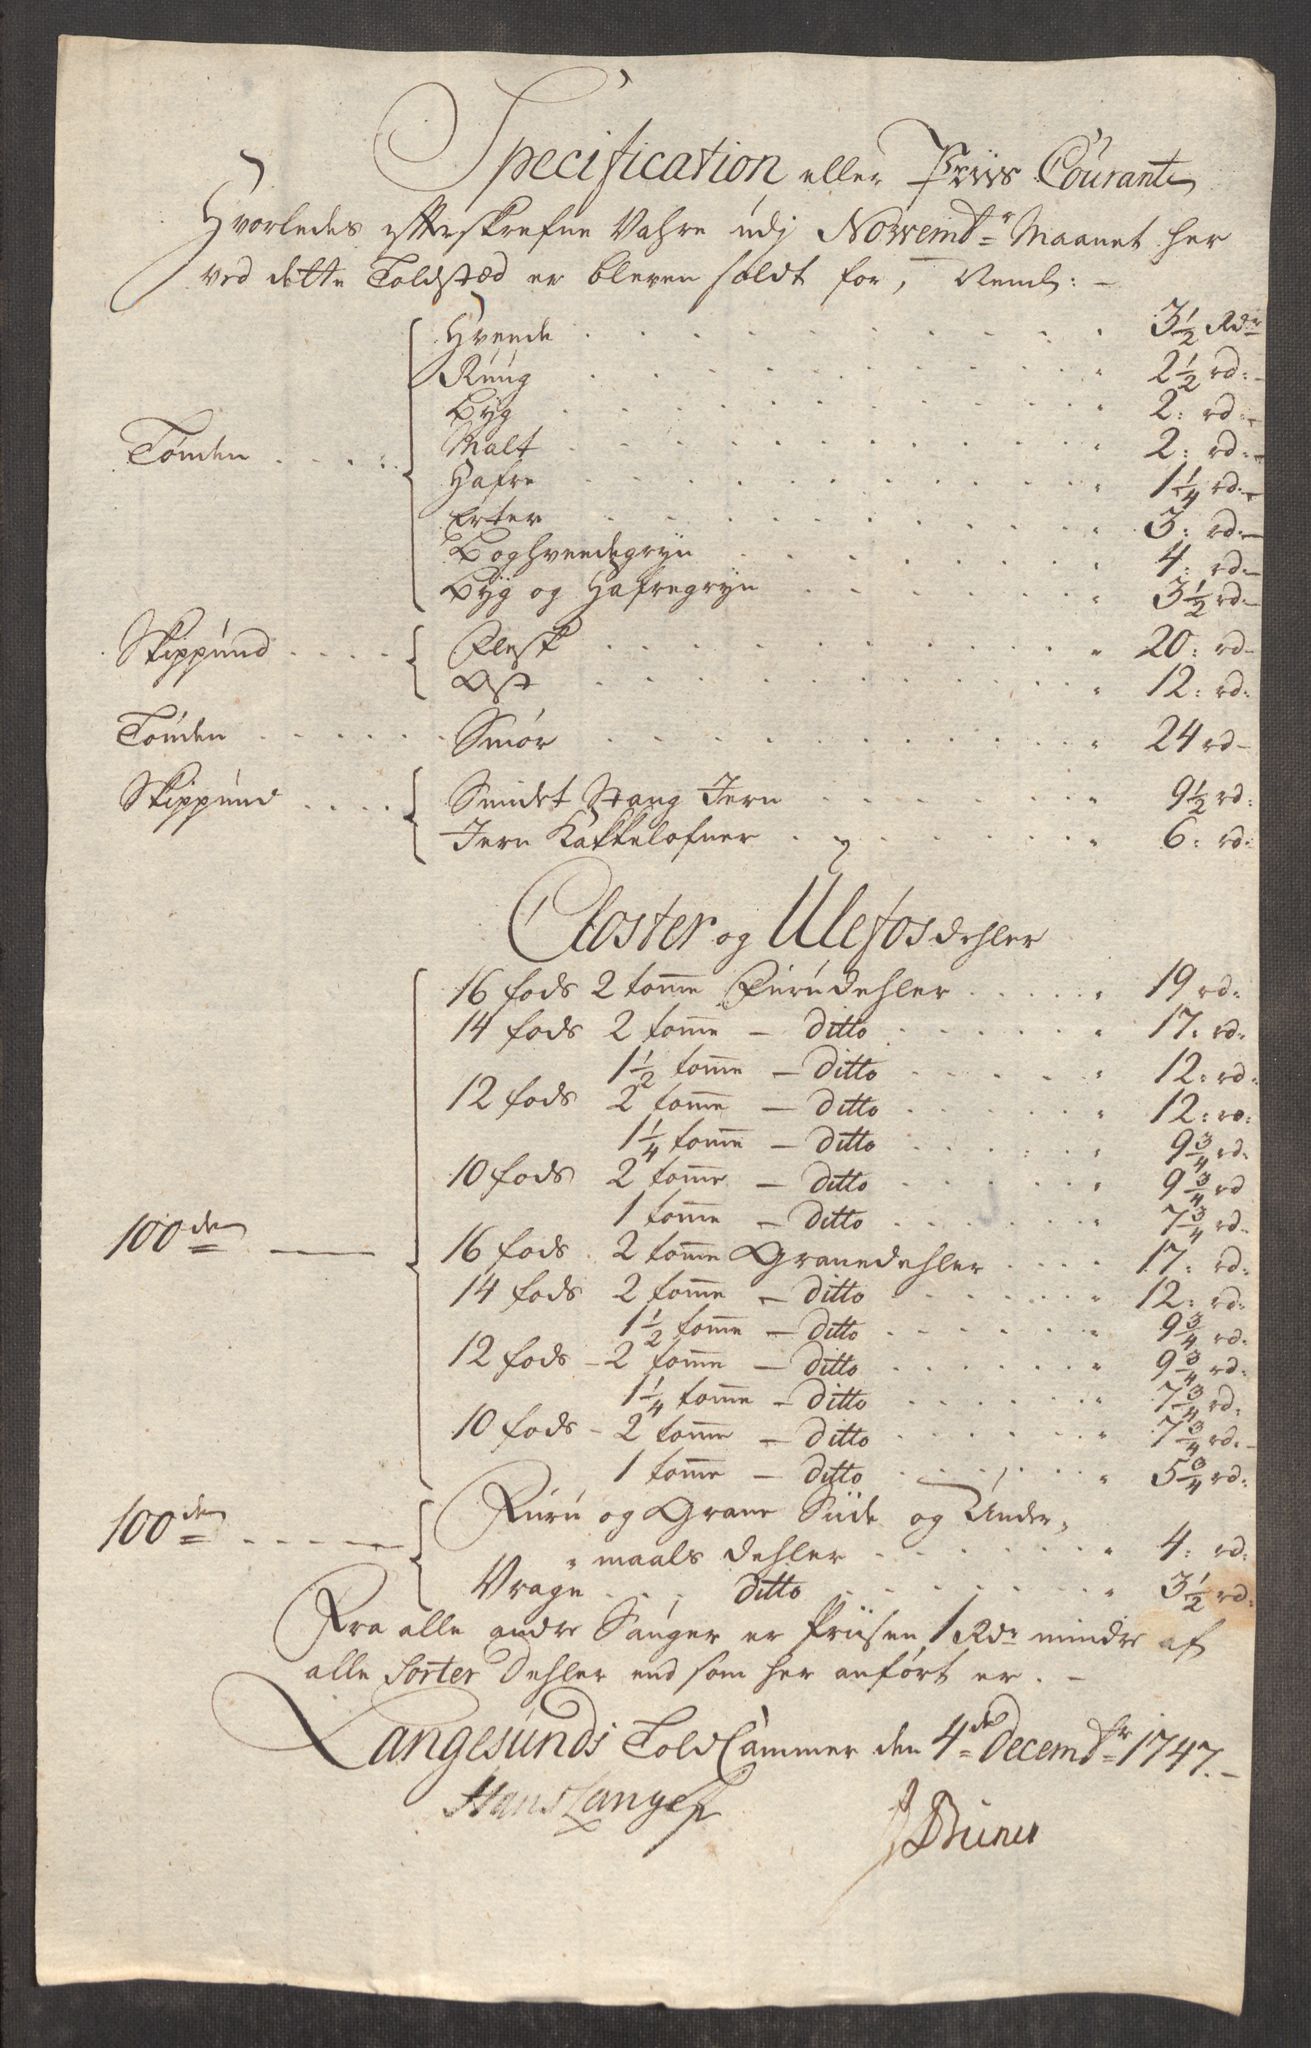 Specification eller Priis Courante
Hvorledes efterskrefne Vahre udj Novembr Maanet her
ved dette Toldstæd er bleven soldt for, Neml: -
Hvende . . . 3 1/2 Rdr
Rúúg . . . 2 1/2 rd:
Býg . . . 2: rd:
Tønden . . . Malt . . . 2: rd:
Hafre . . . 1 1/4 rd:
Erter . . . 3: rd:
Boghvendegryn . . . 4: rd:
Býg og Hafregryn . . . 3 1/2 rd:
Skippúnd . . . Flesk . . . 20: rd
Ost . . . 12: rd:
Tønden . . . Smør . . . 24 rd
Skippúnd . . . Smidet Stang Jern . . . 9 1/2 rd:
Jern Kakkelofner . . . 6: rd:
Closter og Ulefos dehler
16 fods 2 tomme Fúrúdehler . . . 19 rd:
14 fods 2 tomme - ditto . . . 17: rd:
1 1/2 tomme - ditto . . . 12: rd:
12 fods 2 tomme - ditto . . . 12: rd:
1 1/4 tomme - ditto . . . 9 3/4 rd:
10 fods 2 tomme - ditto . . . 9 3/4 rd
1 tomme - ditto . . . 7 3/4 rd:
100de 16 fods 2 tomme Granedehler . . . 17: rd:
14 fods 2 tomme - ditto . . . 12: rd:
1 1/2 tomme - ditto . . . 9 3/4 rd:
12 fods - 2 tomme - ditto . . . 9 3/4 rd:
1 1/4 tomme - ditto . . . 7 3/4 rd:
10 fods - 2 tomme - ditto . . . 7 3/4 rd:
1 tomme - ditto . . . 5 3/4 rd:
100de . . . Fúrú og Grane Siide og Under,
maals dehler . . . 4: rd:
Vrage . . . ditto . . . 3 1/2 rd:
Fra alle andre Sauger er Priisen 1 Rdr mindre af
alle Sorter Dehler end som her anført er. -
Langesunds Told Cammer den 4de Decembr 1747. -
Hans Lange JBúner